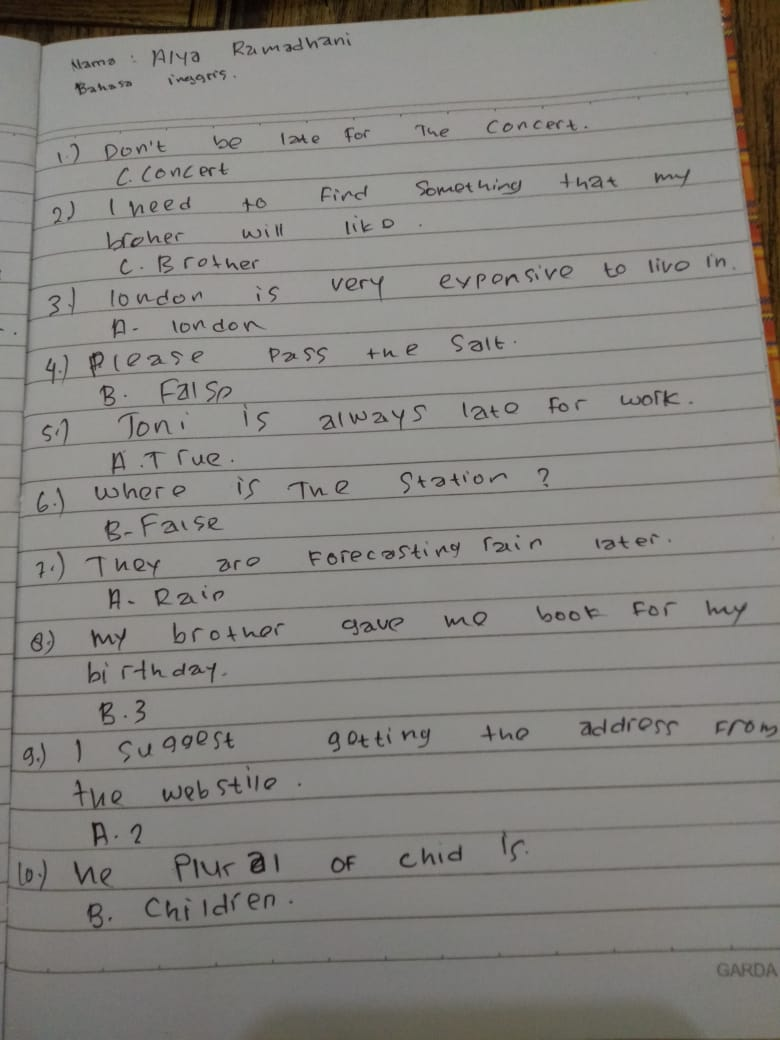 Nama : Alya Ramadhani
Bahasa inggris.
1.) Don't be late for The Concert.
C. Concert
2) I need to Find Something that my
broher will like.
C. Brother
3.) london is very expensive to live in.
A. london
4.) Please Pass the Salt.
B. False
5.) Toni is always late for work.
A. True.
6.) where is The Station ?
B. False
7.) They are Forecasting rain later.
A. Rain
8.) my brother gave me book for my
birthday.
B. 3
9.) I suggest getting the address From
the webstile.
A. 2
10.) he Plural of chid is.
B. Children.
GARDA